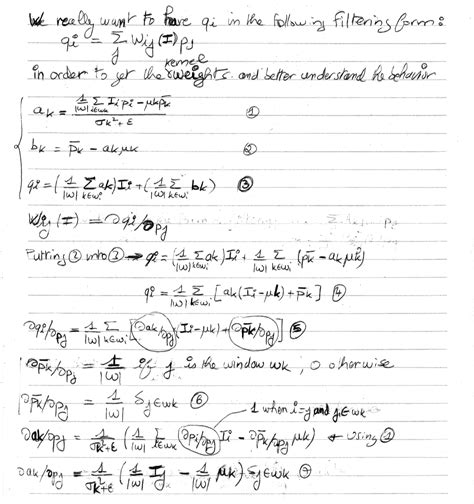 We really want to have qi in the following filtering form:
qi = Σj Wij(I) pj
kernel
in order to get the weights and better understand the behavior
ak = (1/|ω| Σi∈ωk Ii pi − μk p̄k) / (σk² + ε) ①
bk = p̄k − ak μk ②
qi = (1/|ω| Σk∈ωi ak) Ii + (1/|ω| Σk∈ωi bk) ③
Wij(I) = ∂qi/∂pj
Putting ② into ③ → qi = (1/|ω| Σk∈ωi ak) Ii + 1/|ω| Σk∈ωi (p̄k − ak μk)
qi = 1/|ω| Σk∈ωi [ak(Ii − μk) + p̄k] ④
∂qi/∂pj = 1/|ω| Σk∈ωi [∂ak/∂pj (Ii − μk) + ∂p̄k/∂pj] ⑤
∂p̄k/∂pj = 1/|ω| if j is the window ωk, 0 otherwise
∂p̄k/∂pj = 1/|ω| δj∈ωk ⑥
1 when i=j and j∈ωk
∂ak/∂pj = 1/(σk²+ε) (1/|ω| Σi∈ωk ∂pi/∂pj Ii − ∂p̄k/∂pj μk) using ①
∂ak/∂pj = 1/(σk²+ε) (1/|ω| Ij − 1/|ω| μk) δj∈ωk ⑦